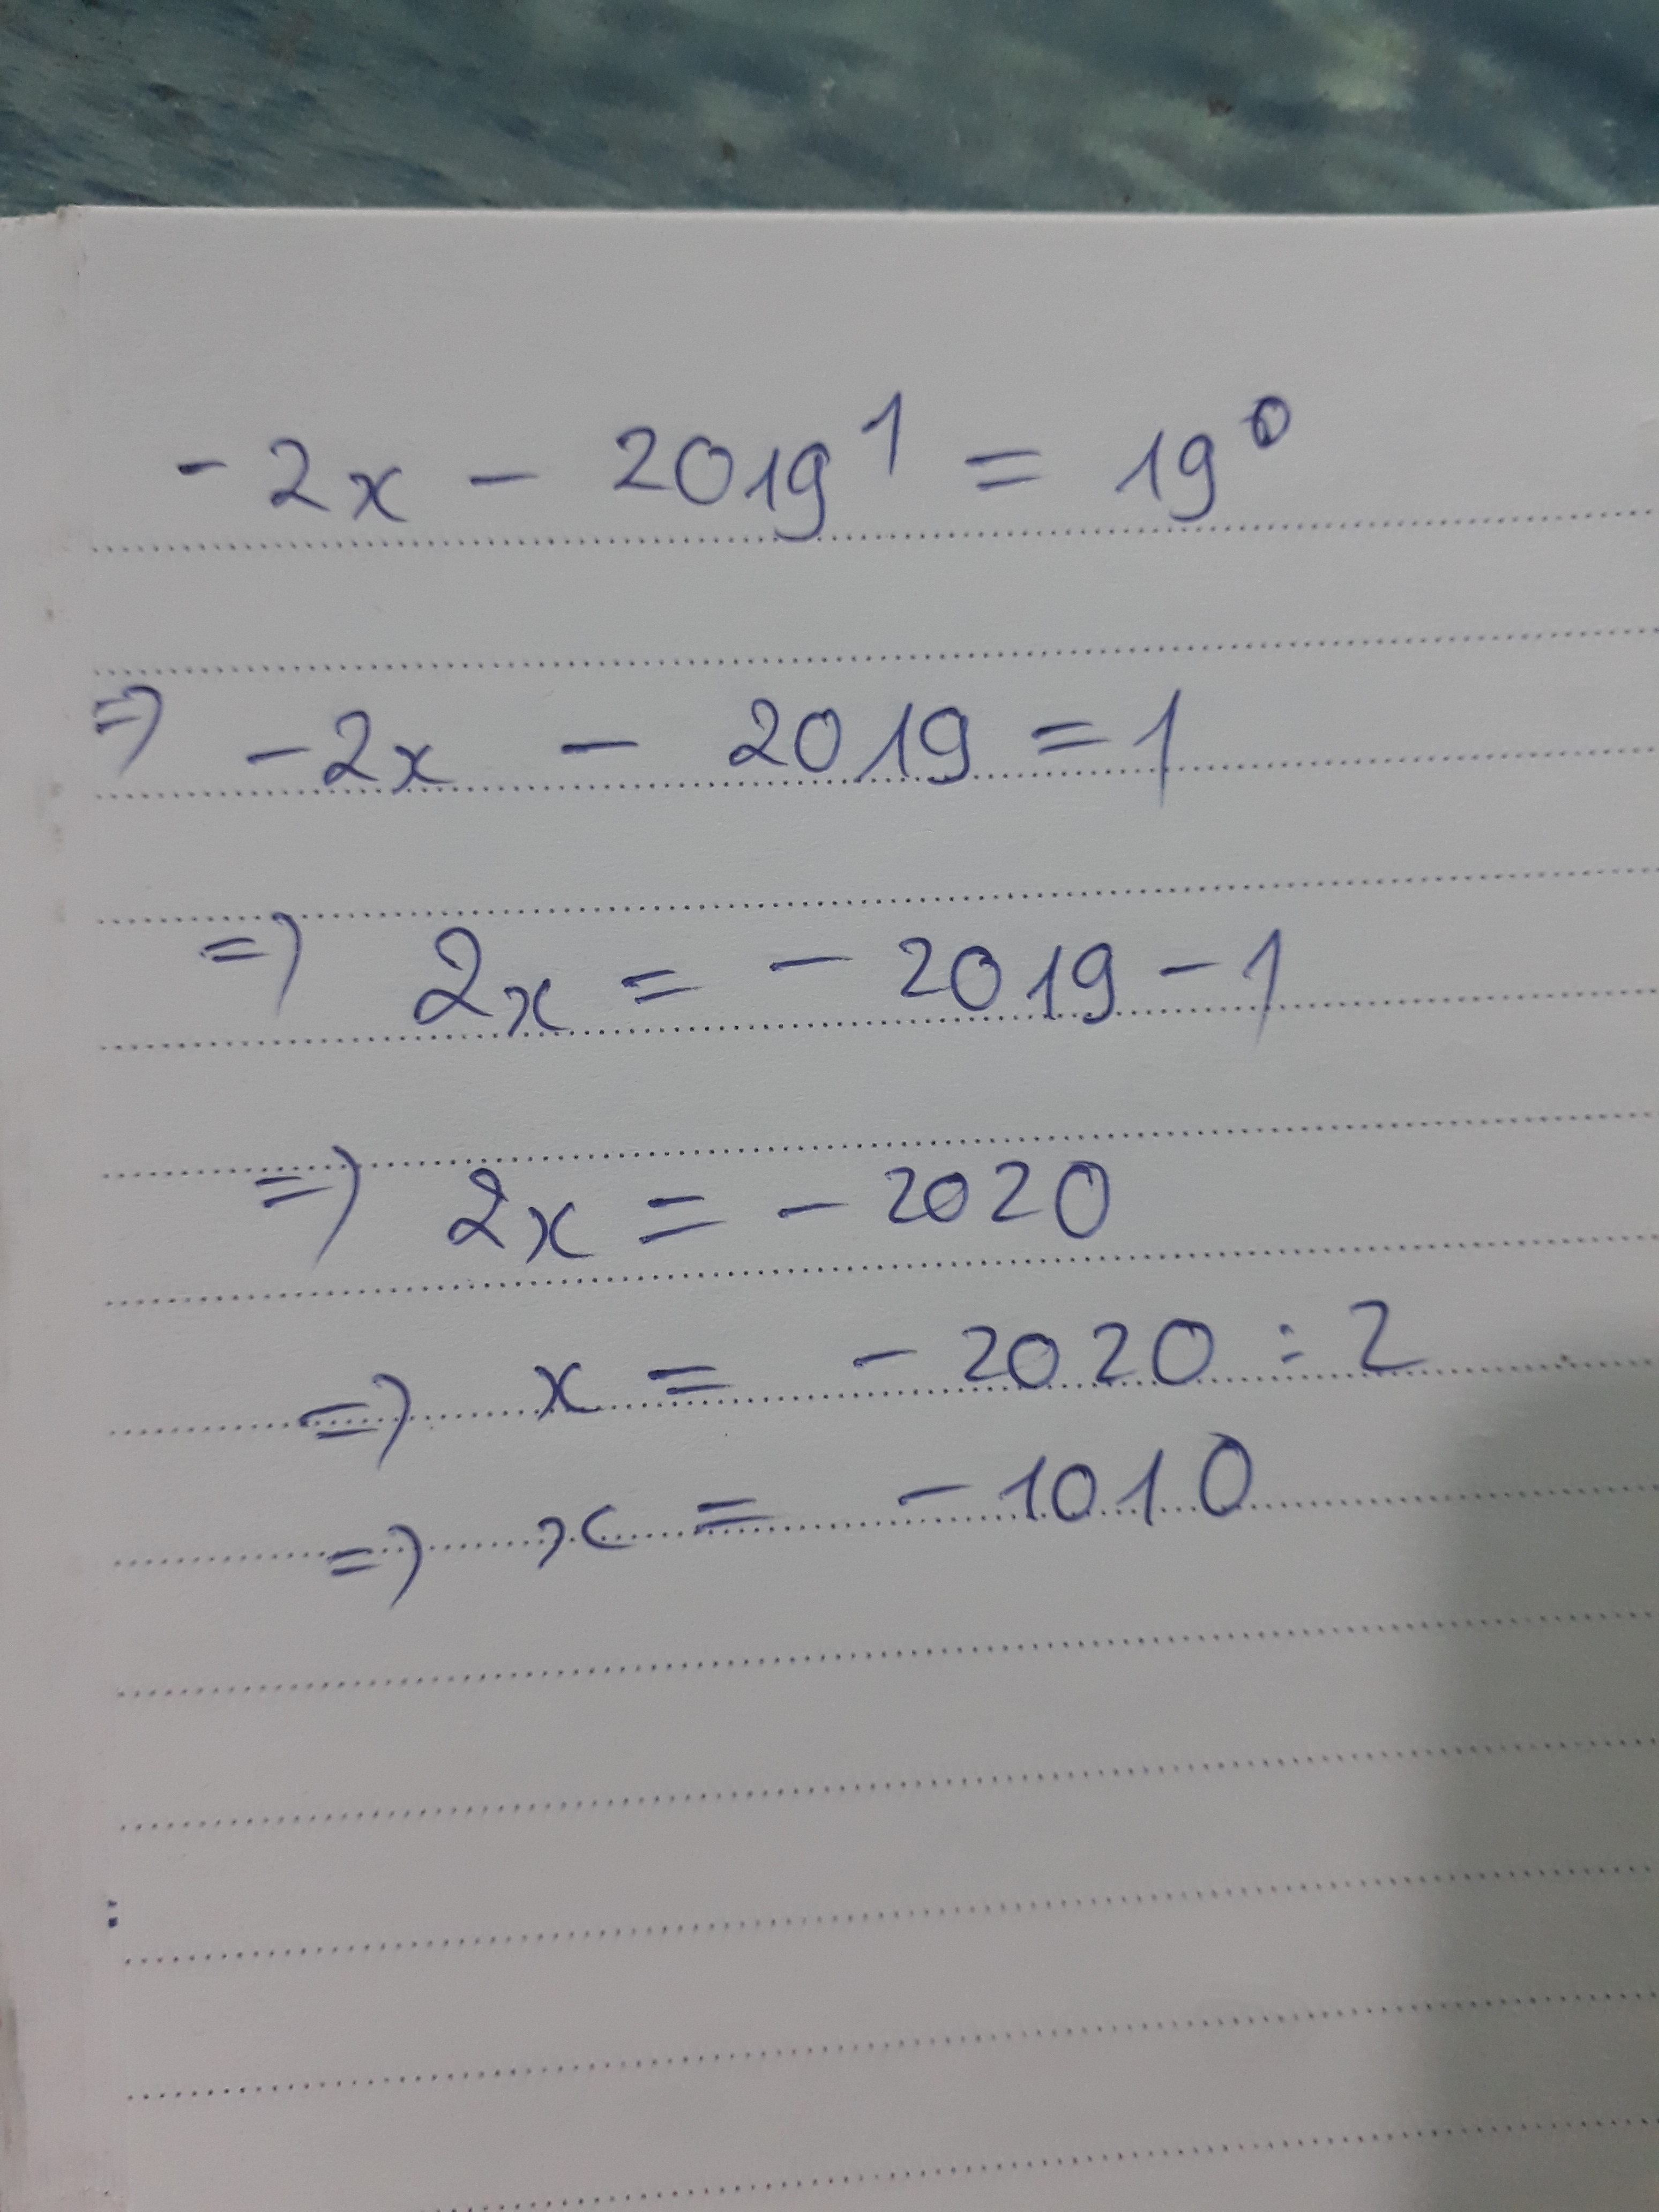 - 2x - 2019¹ = 19⁰
=> - 2x - 2019 = 1
=> 2x = - 2019 - 1
=> 2x = - 2020
=> x = - 2020 : 2
=> x = - 1010